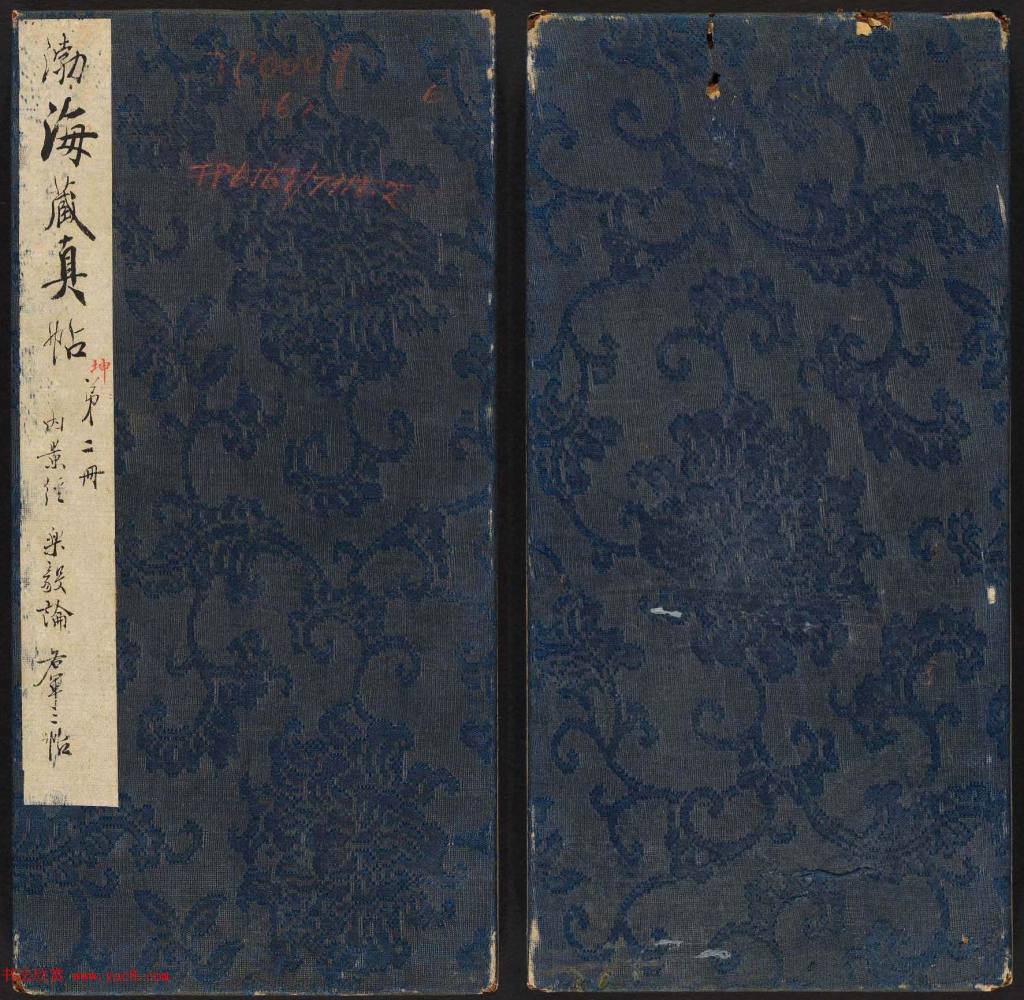 渤海藏真帖
坤
第二冊
內景經 樂毅論 右軍二帖
TP0009
161
6
书法欣赏 www.yac8.com